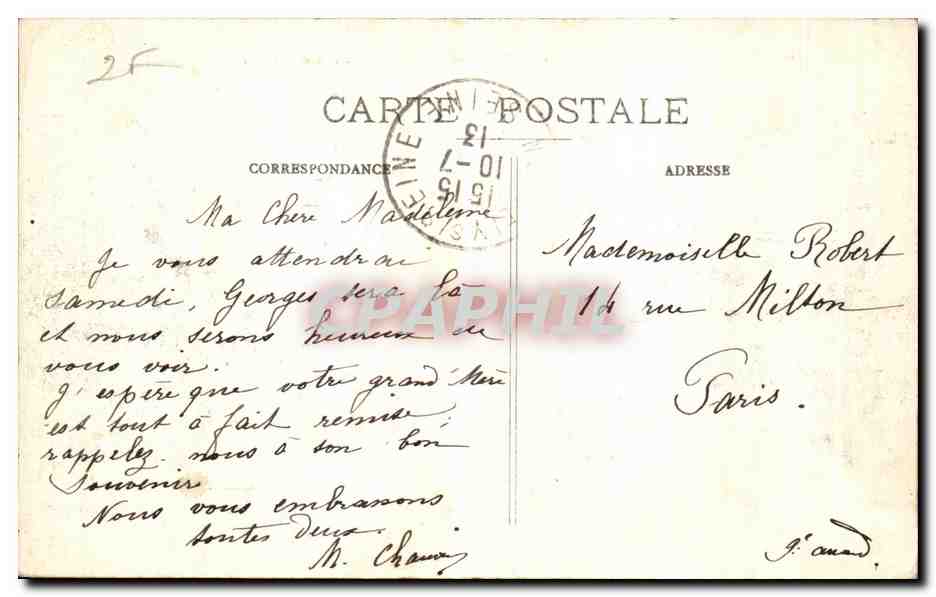 2F
CARTE POSTALE
CORRESPONDANCE
ADRESSE
SEINE
15 15
10-7
13
Ma Chère Madeleine
Je vous attendrai
samedi, Georges sera là
et nous serons heureux de
vous voir.
J'espère que votre grand'Mère
est tout à fait remise,
rappelez nous à son bon
souvenir
Nous vous embrassons
toutes deux.
M.
Mademoiselle Robert
14 rue Milton
Paris.
CPAPHIL